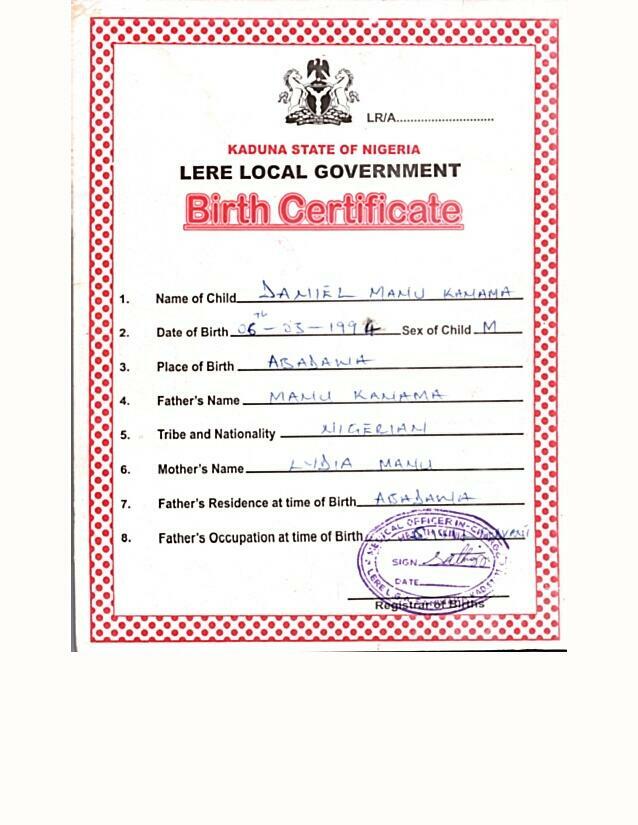 LR/A............................
KADUNA STATE OF NIGERIA
LERE LOCAL GOVERNMENT
Birth Certificate
1. Name of Child DANIEL MANU KANAMA
2. Date of Birth 06th - 03 - 1994 Sex of Child M
3. Place of Birth ABADAWA
4. Father's Name MANU KANAMA
5. Tribe and Nationality NIGERIAN
6. Mother's Name LYDIA MANU
7. Father's Residence at time of Birth ABADAWA
8. Father's Occupation at time of Birth
MEDICAL OFFICER IN-CHARGE
SIGN.
DATE
LERE L.G.A.
Registrar of Births